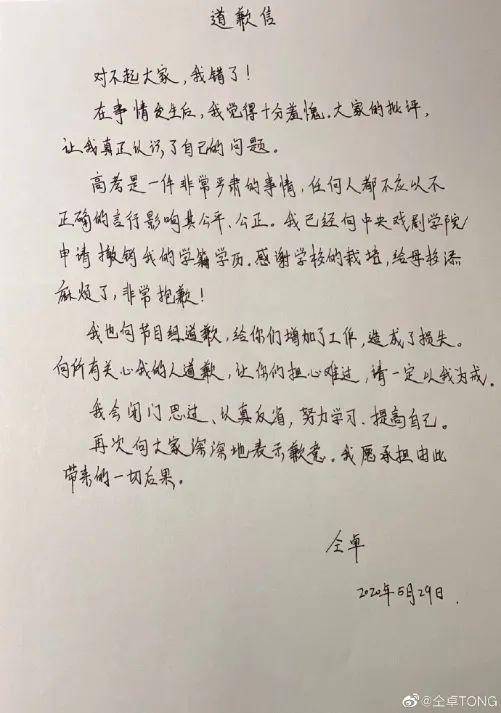 道歉信
对不起大家，我错了！
在事情发生后，我觉得十分羞愧。大家的批评，
让我真正认识了自己的问题。
高考是一件非常严肃的事情，任何人都不应以不
正确的言行影响其公平、公正。我已经向中央戏剧学院
申请撤销我的学籍学历。感谢学校的栽培，给母校添
麻烦了，非常抱歉！
我也向节目组道歉，给你们增加了工作，造成了损失。
向所有关心我的人道歉，让你们担心难过，请一定以我为戒。
我会闭门思过、认真反省，努力学习、提高自己。
再次向大家深深地表示歉意。我愿承担由此
带来的一切后果。
仝卓
2020年5月29日.
@仝卓TONG